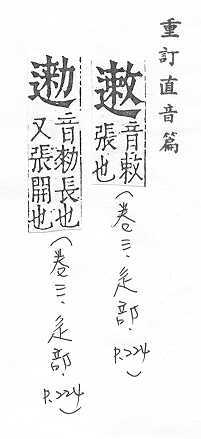 重訂直音篇
遫
音敕
張也
(卷三.辵部.P.224)
音勑長也
又張開也
(卷三.辵部.P.224)